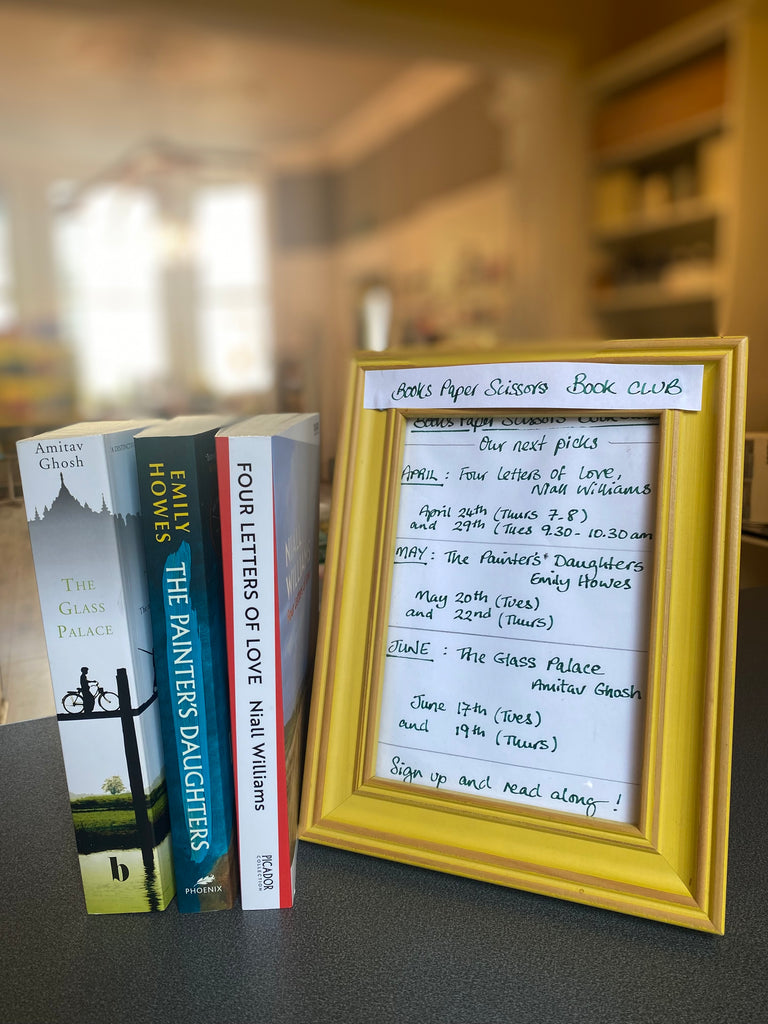 Amitav
Ghosh
THE
GLASS
PALACE
b
EMILY
HOWES
THE PAINTER'S DAUGHTERS
PHOENIX
FOUR LETTERS OF LOVE Niall Williams
PICADOR
COLLECTION
Books Paper Scissors Book CLUB
Books Paper Scissors
Our next picks
APRIL : Four Letters of Love,
Niall Williams
April 24th (Thurs 7-8)
and 29th (Tues 9.30 - 10.30am
MAY : The Painter's Daughters
Emily Howes
May 20th (Tues)
and 22nd (Thurs)
JUNE : The Glass Palace
Amitav Ghosh
June 17th (Tues)
and 19th (Thurs)
Sign up and read along!